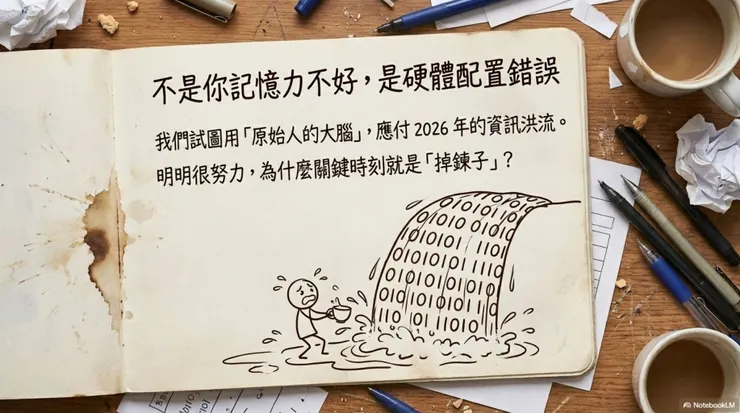 不是你記憶力不好，是硬體配置錯誤
我們試圖用「原始人的大腦」，應付 2026 年的資訊洪流。
明明很努力，為什麼關鍵時刻就是「掉鍊子」？
NotebookLM